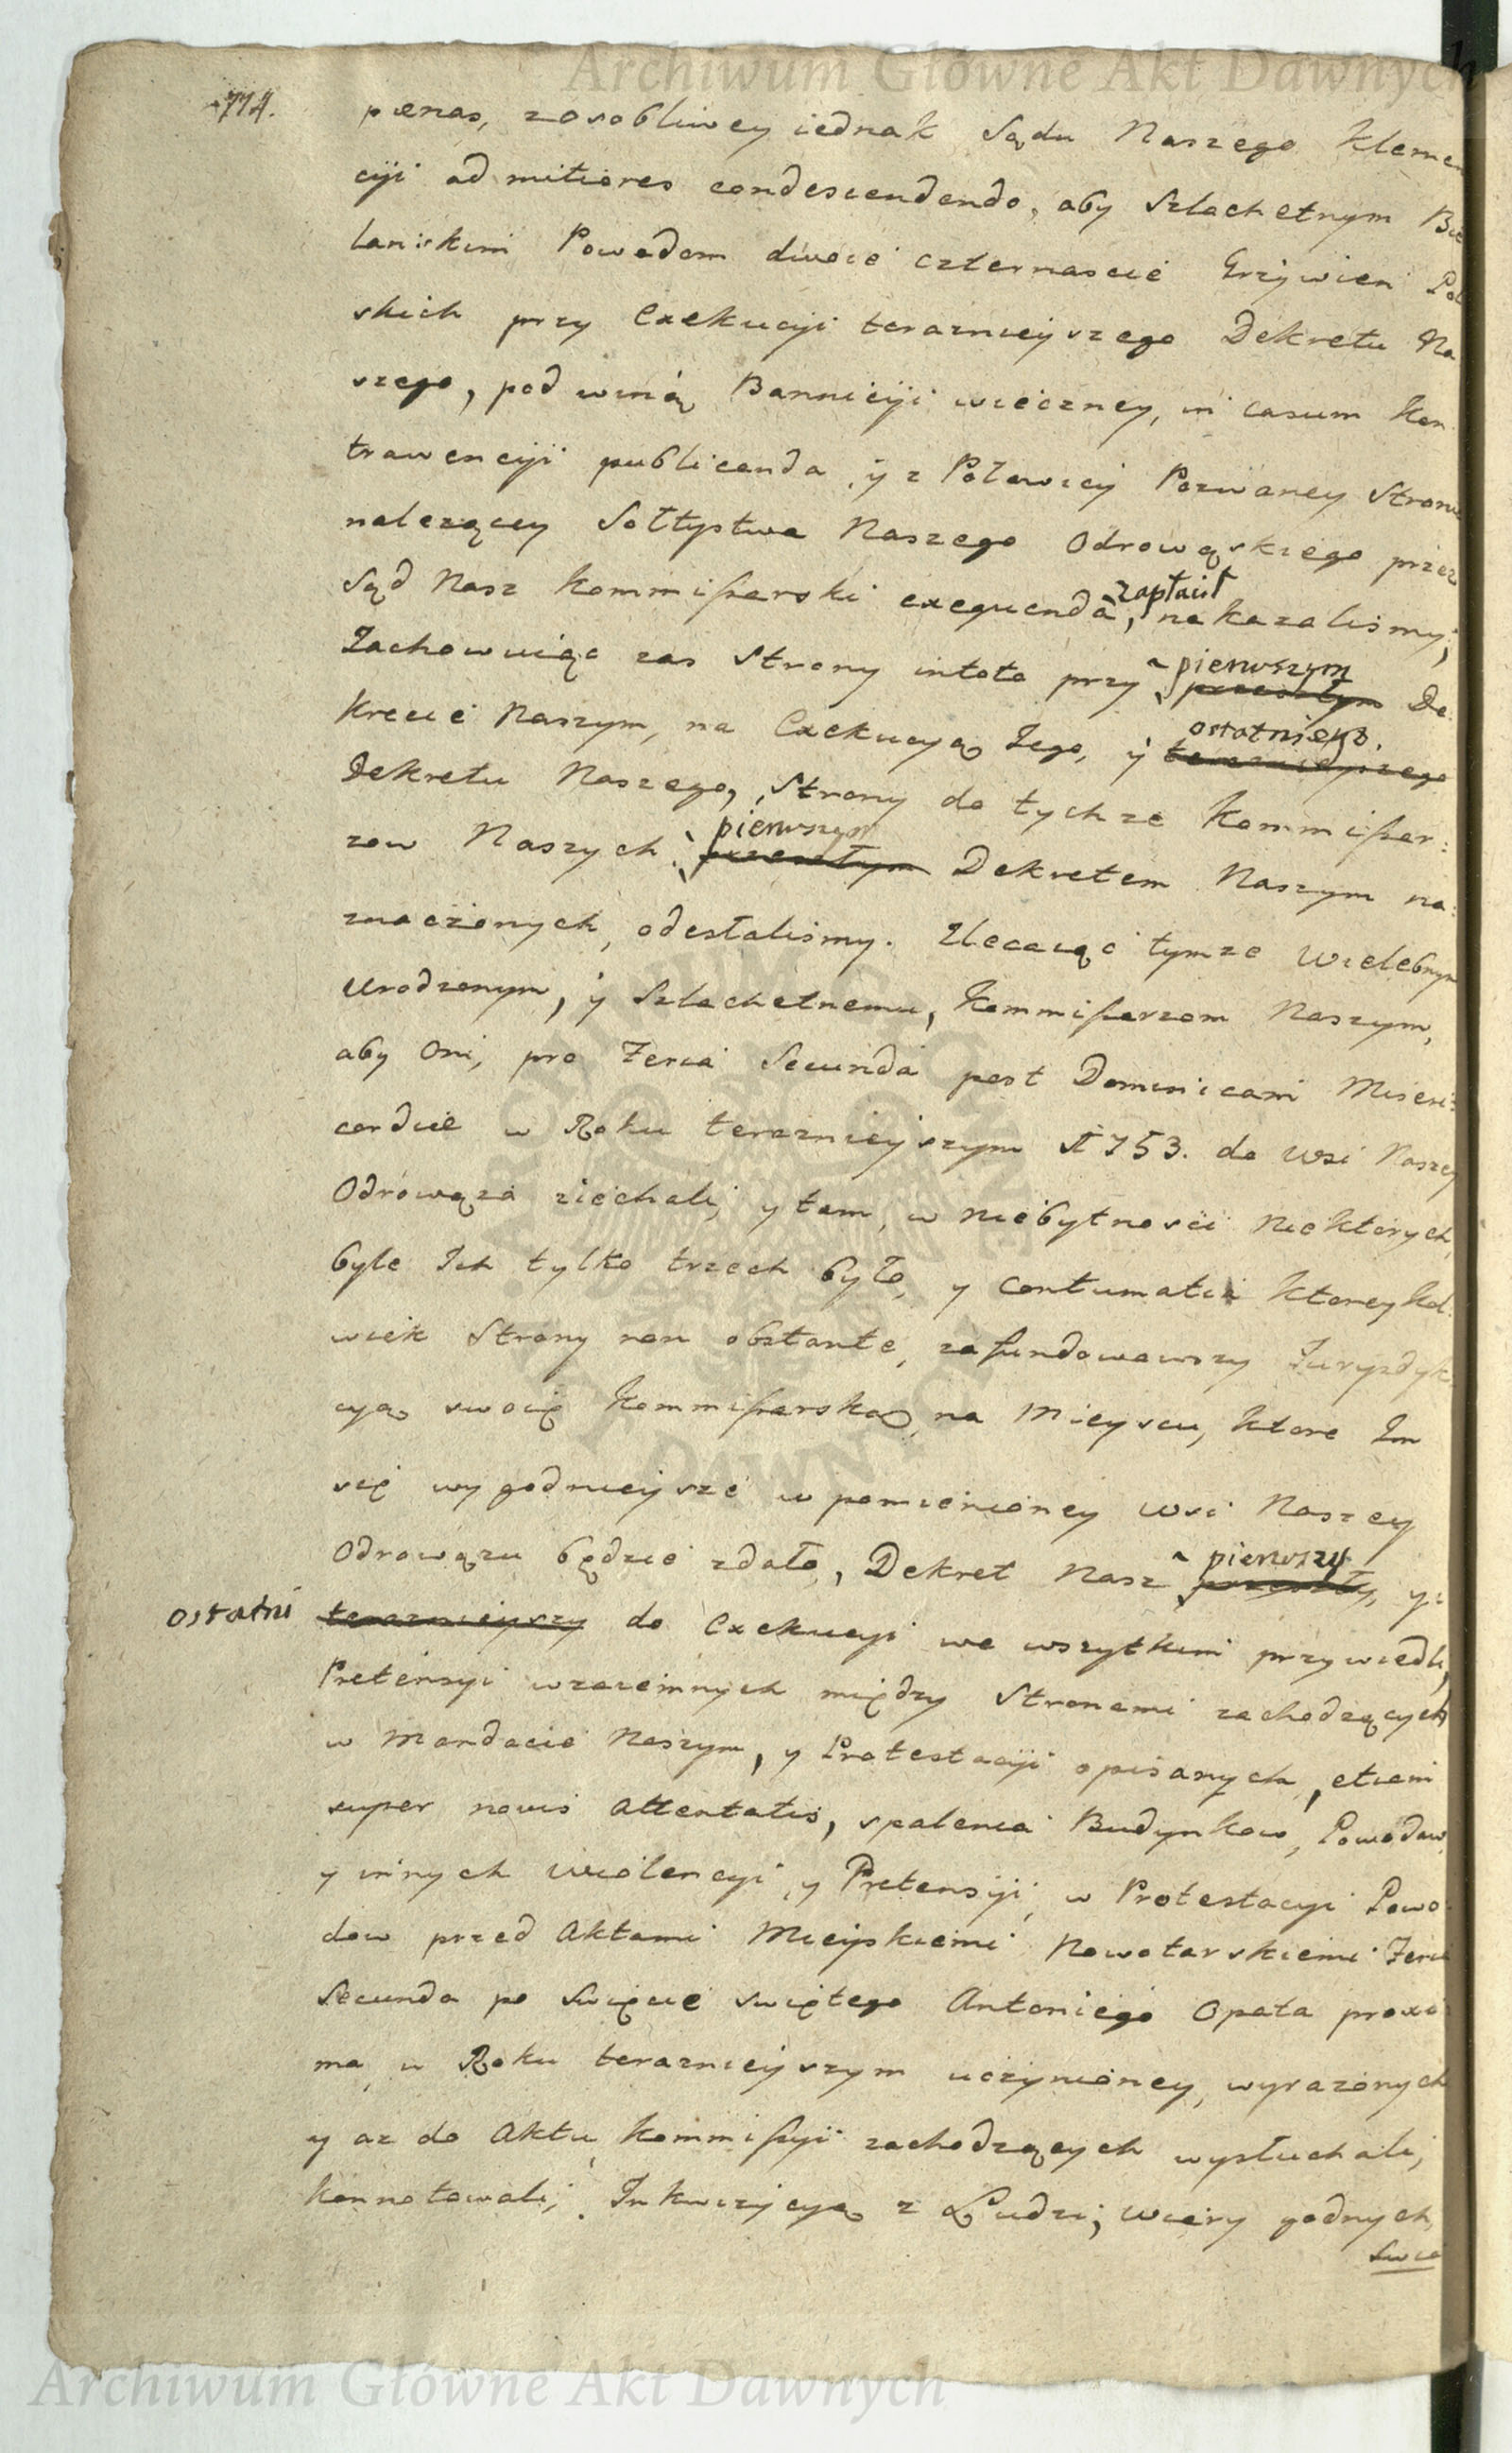 Archiwum Główne Akt Dawnych
774.
pœnas, zosobliwey iednak Sądu Naszego Klemen
cyi ad mitiores condescendendo, aby Szlachetnym Bie
lanskim Powodom dwoie czternascie Grzywien Pol
skich przy Exekucyi teraznieyszego Dekretu Na
szego, pod winą Bannicyi wieczney, in casum kon
trawencyi publicanda, y z Połowicy Pozwaney Stronie
nalezącey Sołtystwa Naszego Odrowąskiego przez
Sąd Nasz Kommissarski exequenda, zapłacił nakazalismy;
Zachowuiąc zas Strony intoto przy pierwszym przeszłym De:
krecie Naszym, na Exekucyą Jego, y ostatniego. teraznieyszego
Dekretu Naszego, Strony do tychze Kommissar:
zow Naszych, pierwszym przeszłym Dekretem Naszym na:
znaczonych, odesłalismy. Zlecaiąc tymze Wielebnym
Urodzonym, y Szlachetnemu, Kommissarzom Naszym,
aby Oni, pro Feria Secunda post Dominicam Miseri:
cordiæ w Roku teraznieyszym 1753. do Wsi Naszey
Odrowąza ziechali, y tam, w niebytnosci niektorych,
byle Ich tylko trzech było, y contumatia ktoreykol:
wiek Strony non obstante, zafundowawszy Juryzdyk
cyą swoię Kommissarską, na Mieyscu, ktore Im
się wygodnieysze w pomienioney Wsi Naszey
Odrowązu będzie zdało, Dekret Nasz pierwszy przeszły, y:
ostatni teraznieyszy do Exekucyi we wszytkim przywiedli,
Pretensyi wzaiemnych między Stronami zachodzących
w Mandacie Naszym, y Protestacyi opisanych, etiam
super novis attentatis, spalenia Budynkow, Powodow,
y innych Wiolencyi, y Pretensyi, w Protestacyi Powo:
dow przed Aktami Mieyskiemi Nowotarskiemi Feria
Secunda po Swięcie swiętego Antoniego Opata proxi
ma, w Roku teraznieyszym uczynioney, wyrazonych
y az do Aktu Kommissyi zachodzących wysłuchali,
konnotowali, Inkwizycyą z Ludzi, wiary godnych,
Swia
Archiwum Główne Akt Dawnych